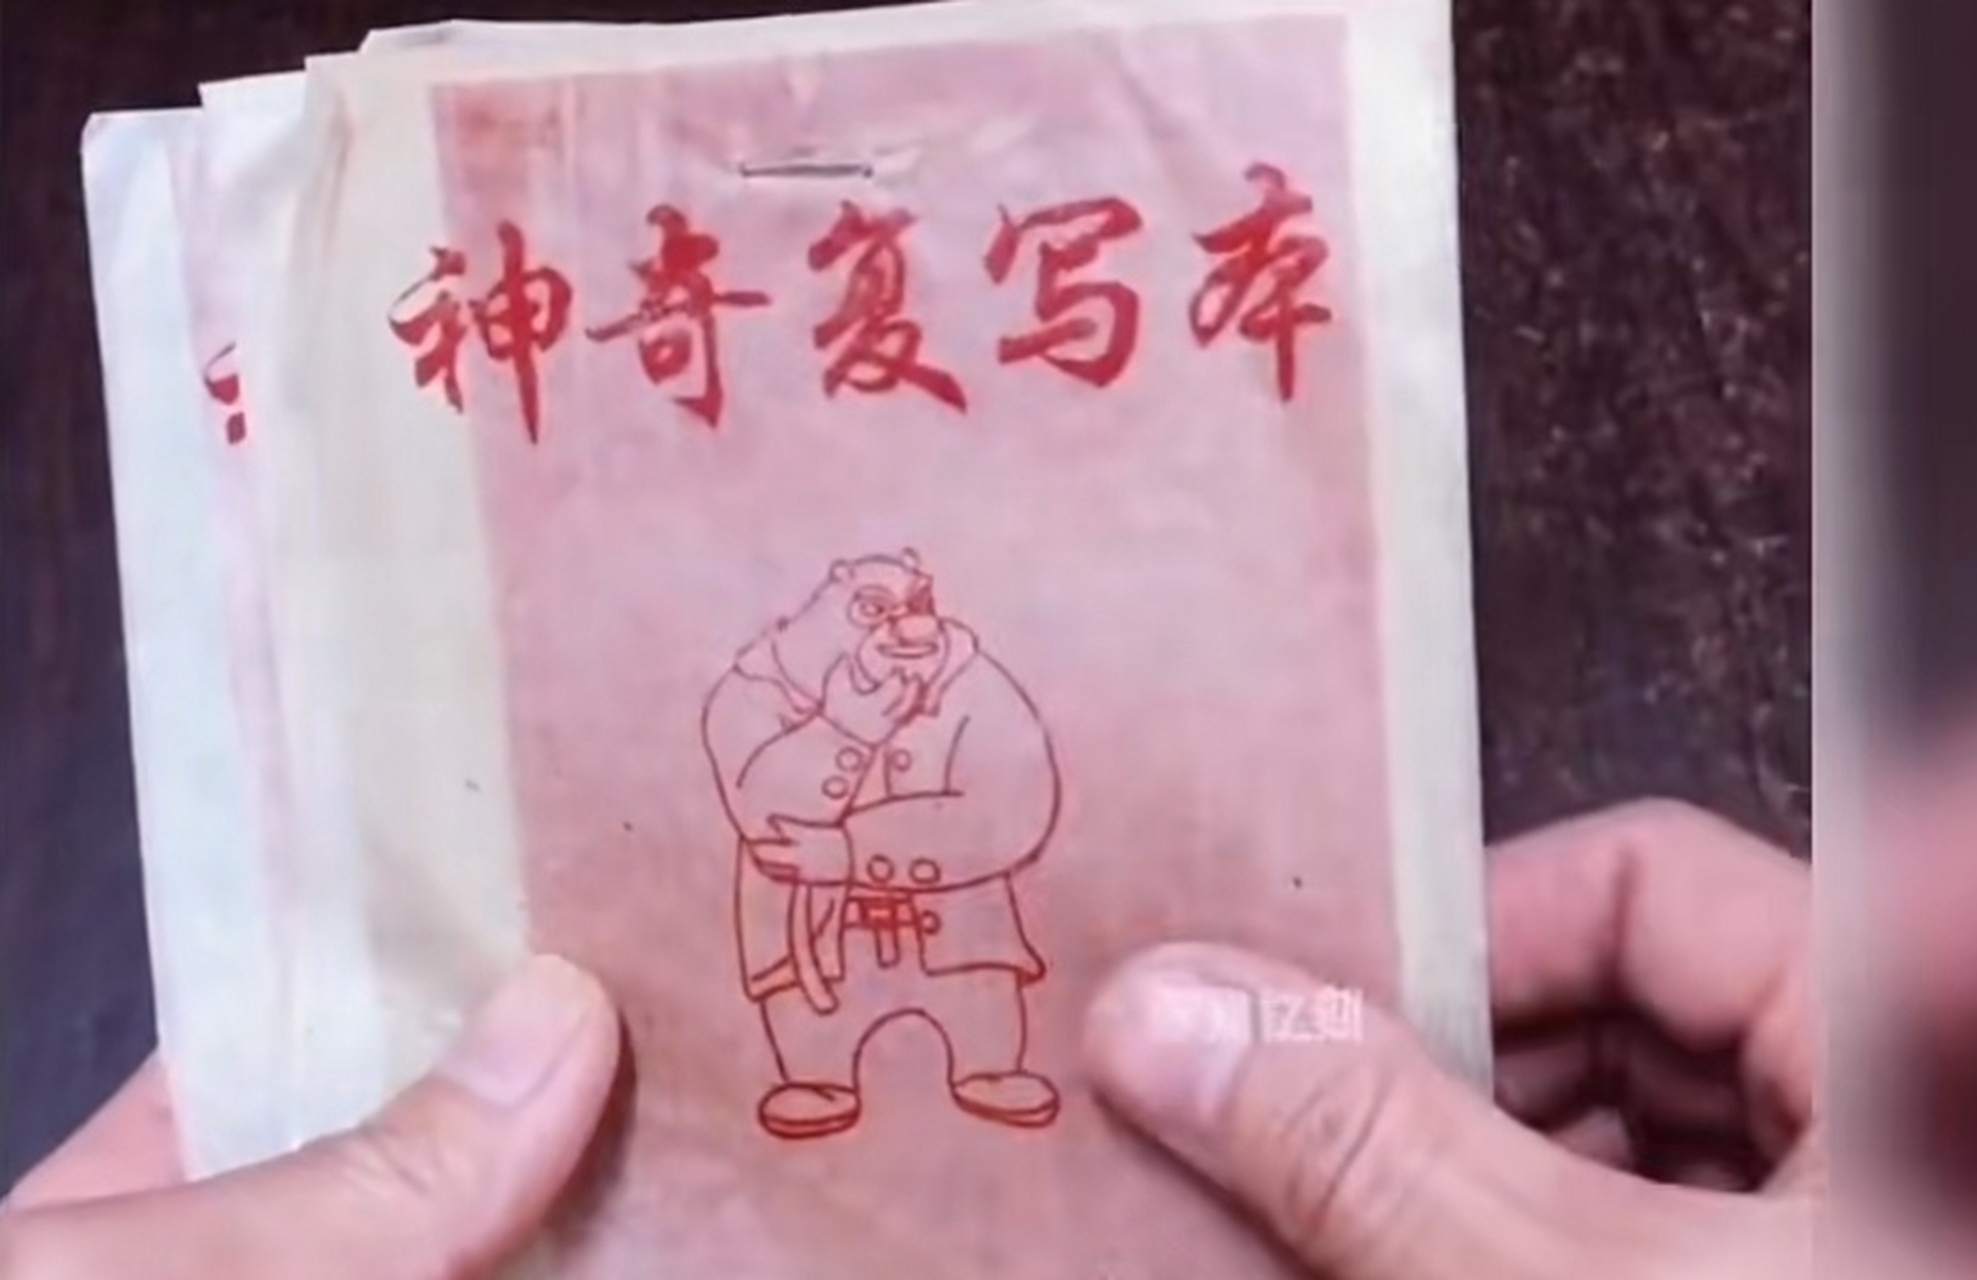 神奇复写本